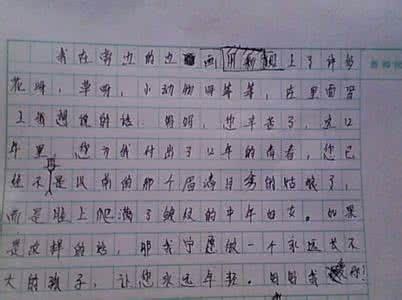 我在旁边的边画用彩刚上了许多
花呀，草呀，小动物呀等等，在里面写
上我想说的话：妈妈，您辛苦了，这12
年里，您为我付出了12年的青春，您已
经不是以前的那个眉清目秀的姑娘了，
而是脸上爬满了皱纹的中年妇女。如果
是这样的话，那我宁愿做一个永远长不
大的孩子，让您永远年轻。妈妈我爱你！